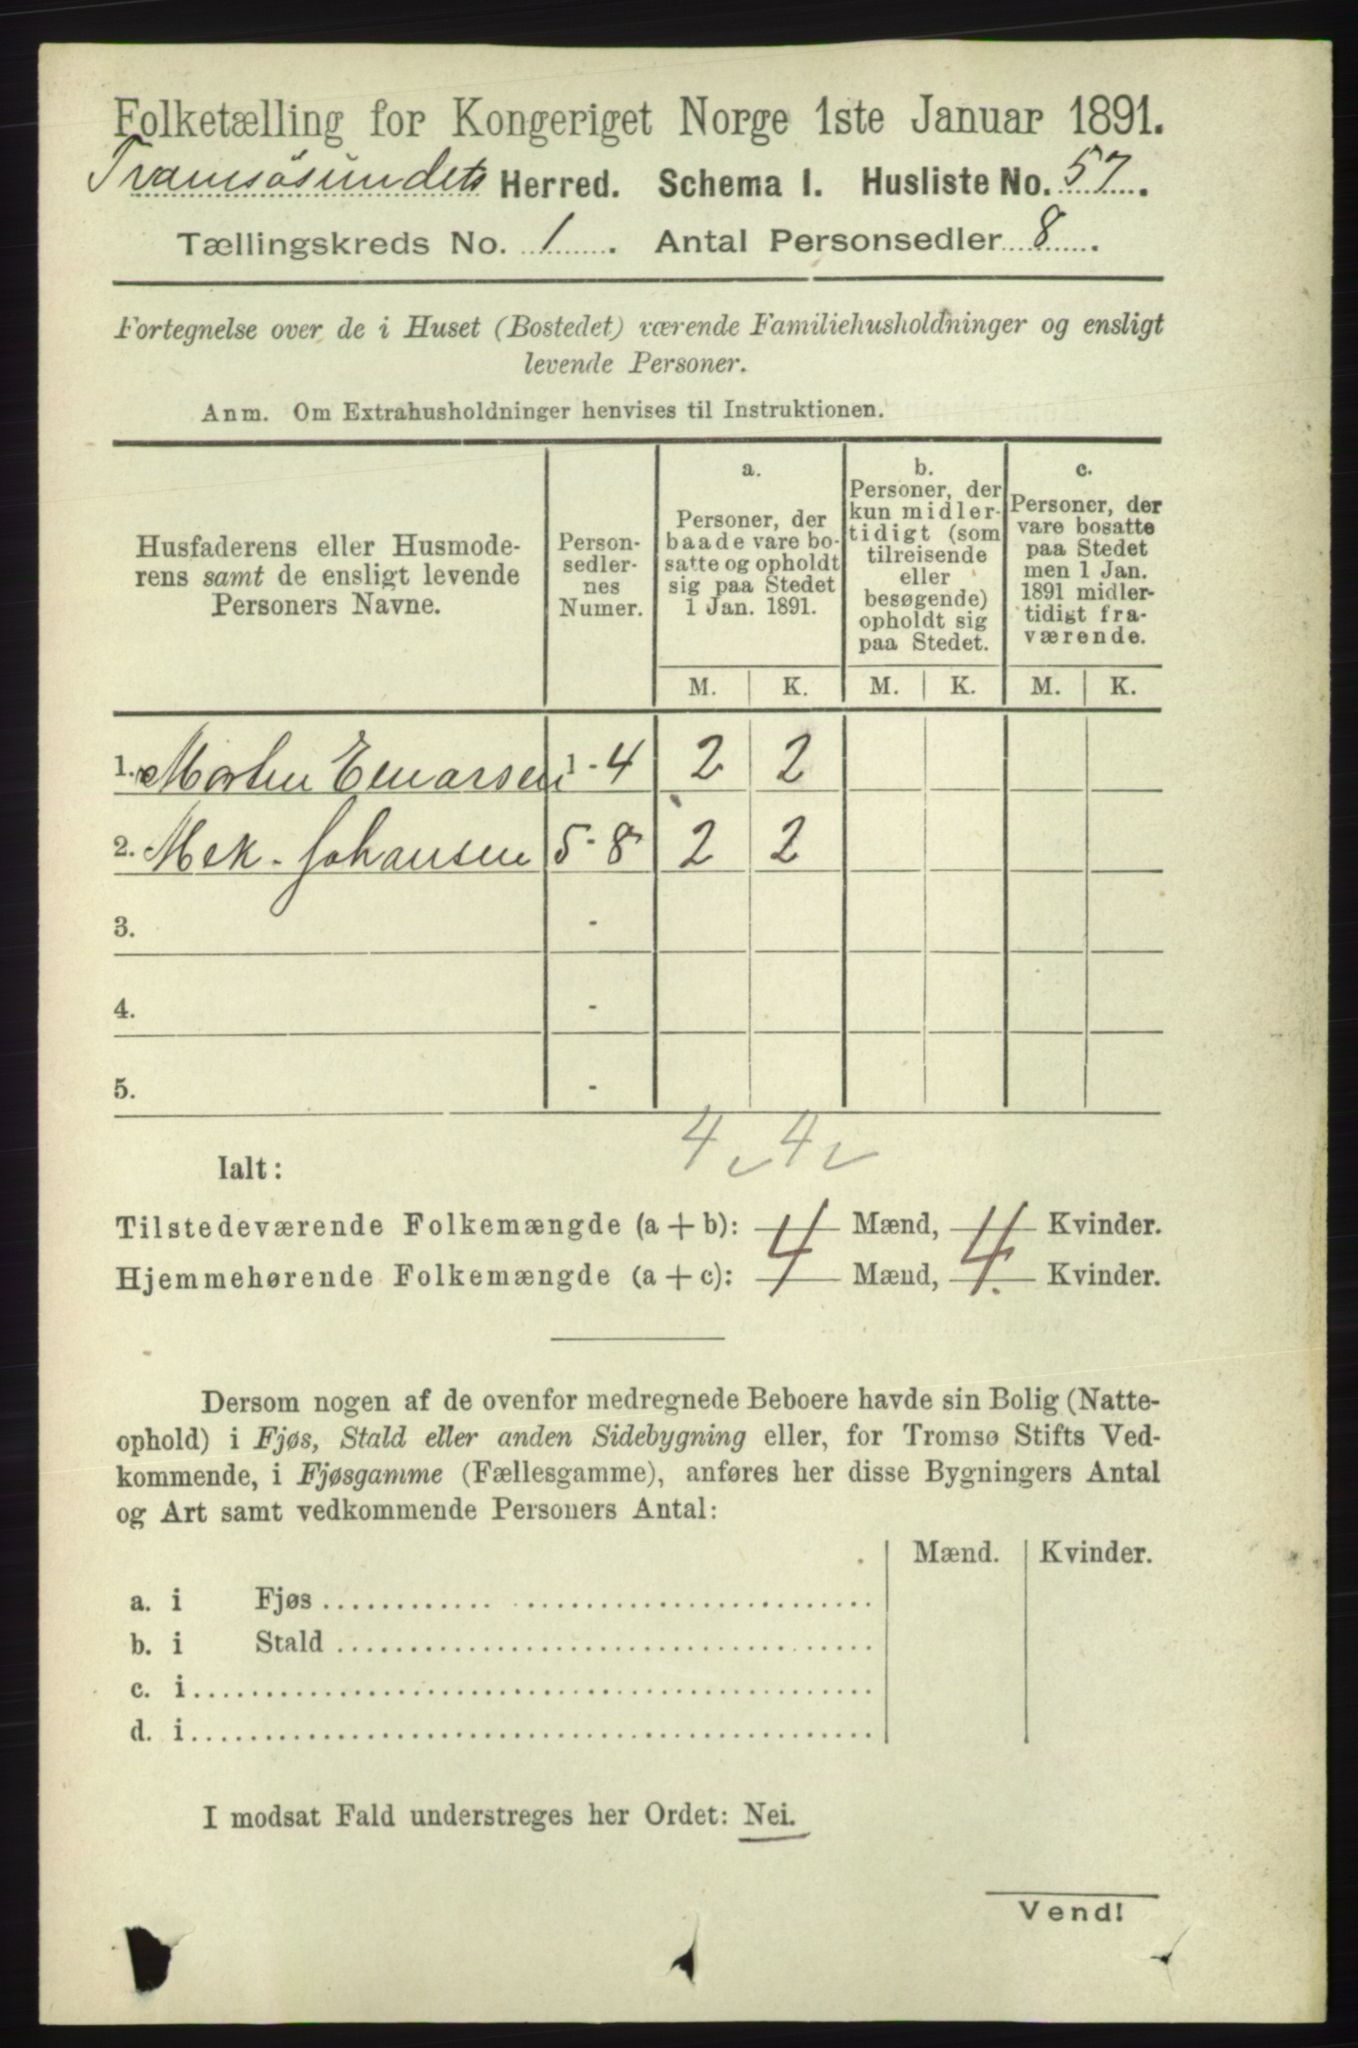 Folketælling for Kongeriget Norge 1ste Januar 1891.
Tromsøsundets Herred. Schema I. Husliste No. 57.
Tællingskreds No. 1. Antal Personsedler 8.
Fortegnelse over de i Huset (Bostedet) værende Familiehusholdninger og ensligt
levende Personer.
Anm. Om Extrahusholdninger henvises til Instruktionen.
Husfaderens eller Husmode-
rens samt de ensligt levende
Personers Navne.
Person-
sedler-
nes
Numer.
a.
Personer, der
baade vare bo-
satte og opholdt
sig paa Stedet
1 Jan. 1891.
b.
Personer, der
kun midler-
tidigt (som
tilreisende
eller
besøgende)
opholdt sig
paa Stedet.
c.
Personer, der
vare bosatte
paa Stedet
men 1 Jan.
1891 midler-
tidigt fra-
værende.
M. K. M. K. M. K.
1. Morten Enarsen 1-4 2 2
2. Mek. Johansen 5-8 2 2
3. -
4. -
5. -
4 4
Ialt:
Tilstedeværende Folkemængde (a + b): 4 Mænd, 4 Kvinder.
Hjemmehørende Folkemængde (a + c): 4 Mænd, 4 Kvinder.
Dersom nogen af de ovenfor medregnede Beboere havde sin Bolig (Natte-
ophold) i Fjøs, Stald eller anden Sidebygning eller, for Tromsø Stifts Ved-
kommende, i Fjøsgamme (Fællesgamme), anføres her disse Bygningers Antal
og Art samt vedkommende Personers Antal:
Mænd. Kvinder.
a. i Fjøs
b. i Stald
c. i
d. i
I modsat Fald understreges her Ordet: Nei.
Vend!